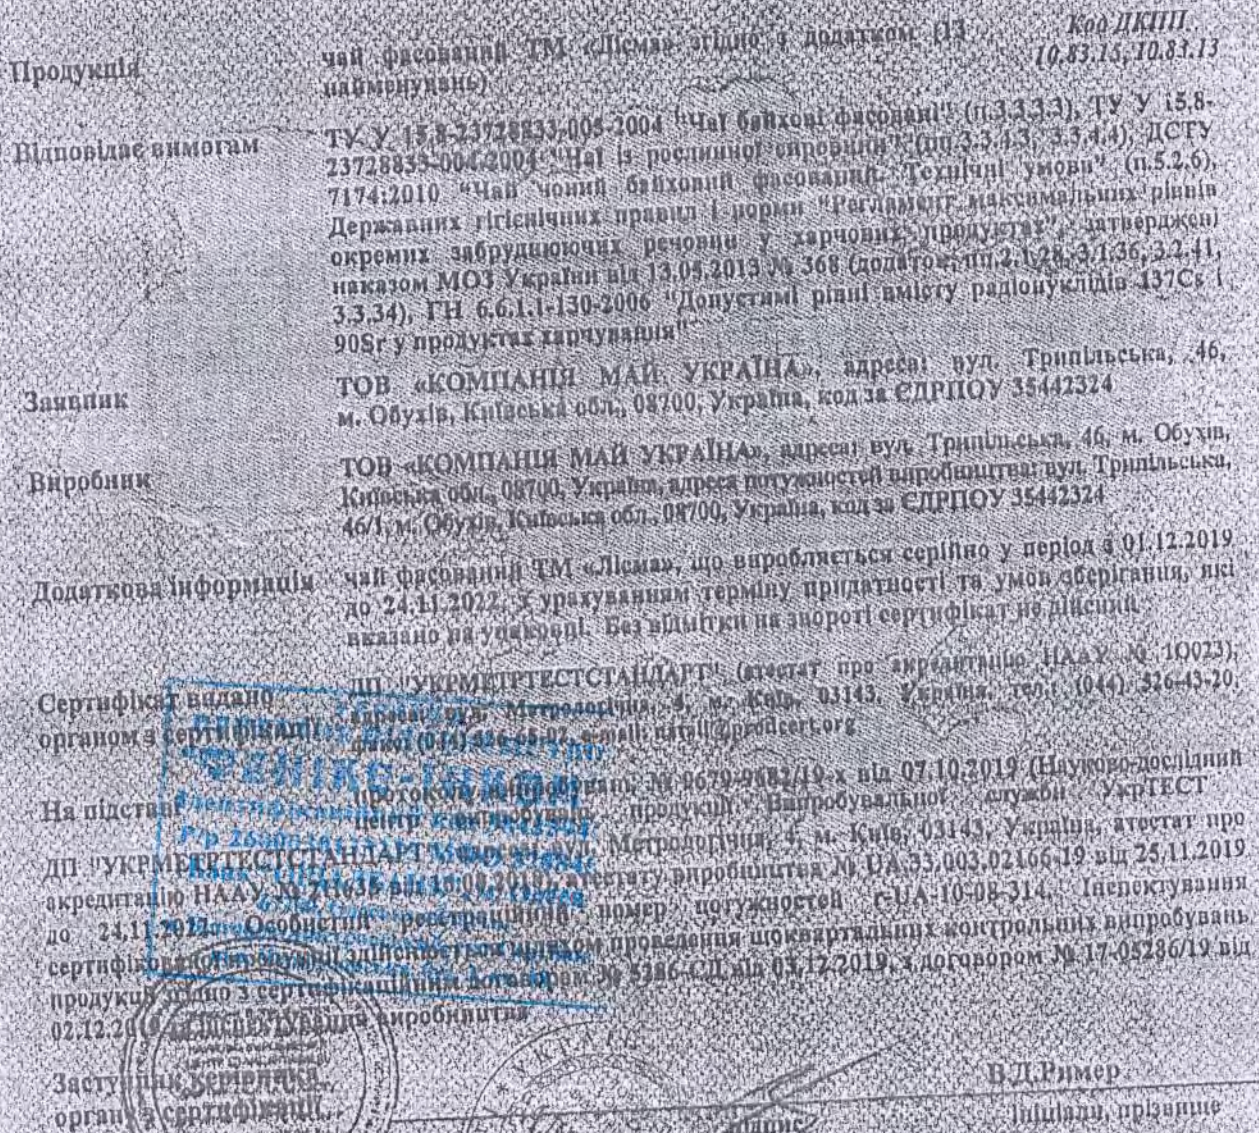 Код ДКПП
Продукція
чай фасований ТМ «Лісма» згідно з додатком (13
10.83.15, 10.83.13
найменувань)
Відповідає вимогам
ТУ У 15.8-23728833-005-2004 "Чаї байхові фасовані" (п.3.3.3.3), ТУ У 15.8-
23728833-004-2004 "Чаї із рослинної сировини" (пп.3.3.4.3, 3.3.4.4), ДСТУ
7174:2010 "Чай чоний байховий фасований. Технічні умови" (п.5.2.6),
Державних гігієнічних правил і норми "Регламент максимальних рівнів
окремих забруднюючих речовин у харчових продуктах", затверджені
наказом МОЗ України від 13.05.2013 № 368 (додаток, пп.2.1.28, 3.1.36, 3.2.41,
3.3.34), ГН 6.6.1.1-130-2006 "Допустимі рівні вмісту радіонуклідів 137Cs і
90Sr у продуктах харчування"
Заявник
ТОВ «КОМПАНІЯ МАЙ УКРАЇНА», адреса: вул. Трипільська, 46,
м. Обухів, Київська обл., 08700, Україна, код за ЄДРПОУ 35442324
Виробник
ТОВ «КОМПАНІЯ МАЙ УКРАЇНА», адреса: вул. Трипільська, 46, м. Обухів,
Київська обл., 08700, Україна, адреса потужностей виробництва: вул. Трипільська,
46/1, м. Обухів, Київська обл., 08700, Україна, код за ЄДРПОУ 35442324
Додаткова інформація
чай фасований ТМ «Лісма», що виробляється серійно у період з 01.12.2019
до 24.11.2022, з урахуванням терміну придатності та умов зберігання, які
вказано на упаковці. Без відмітки на звороті сертифікат не дійсний.
Сертифікат видано
органом з сертифікації
ДП "УКРМЕТРТЕСТСТАНДАРТ" (атестат про акредитацію НААУ № 1О023),
адреса: вул. Метрологічна, 4, м. Київ, 03143, Україна, тел.: (044) 526-43-20,
e-mail: natali@prodcert.org
"ФЕНІКС-ІНКОМ
На підставі
протоколу випробувань № 9679-9682/19-х від 07.10.2019 (Науково-дослідний
центр випробувань продукції Випробувальної служби УкрТЕСТ
ДП "УКРМЕТРТЕСТСТАНДАРТ вул. Метрологічна, 4, м. Київ, 03143, Україна, атестат про
акредитацію НААУ № атестату виробництва № UA.33.003.02166-19 від 25.11.2019
до 24.11.2022. Особистий реєстраційний номер потужностей r-UA-10-08-314. Інспектування
сертифікованої продукції здійснюється шляхом проведення щоквартальних контрольних випробувань
продукції згідно з сертифікаційним договором № 5286-СД від 03.12.2019, з договором № 17-05286/19 від
02.12.2019 на інспектування виробництва
Заступник керівника
органу з сертифікації
В.Д.Ример
підпис
ініціали, прізвище